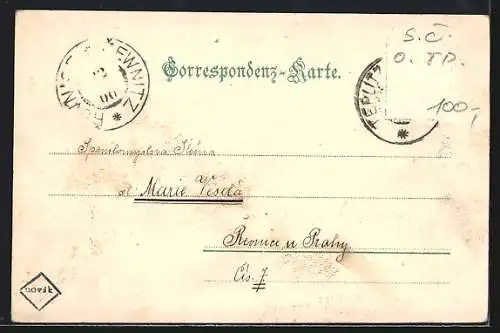 ŘEVNICE ŘEWNITZ
2
00
Correspondenz-Karte.
TEPLITZ
S.Č.
O. TP.
100,-
Spanilomyslná Slečna
sl. Marie Veselá
Revnice u Prahy
Čís. 7
novák